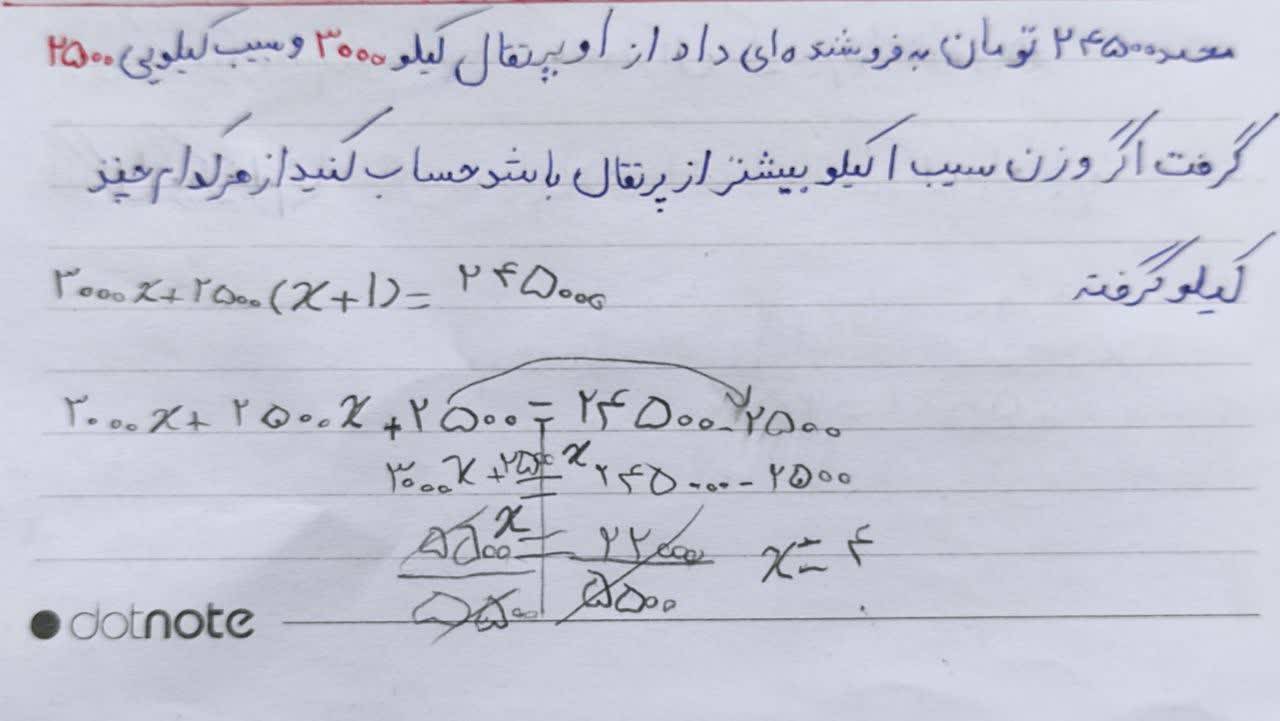 محمد ۲۴۵۰۰ تومان به فروشنده ای داد از او پرتقال کیلو ۳۰۰۰ و سیب کیلویی ۲۵۰۰
گرفت اگر وزن سیب ۱ کیلو بیشتر از پرتقال باشد حساب کنید از هر کدام چند
کیلو گرفته
۳۰۰۰x+۲۵۰۰(x+۱)= ۲۴۵۰۰۰
۳۰۰۰x+ ۲۵۰۰x +۲۵۰۰ = ۲۴۵۰۰-۲۵۰۰
۳۰۰۰x +۲۵۰۰x = ۲۴۵۰۰۰-۲۵۰۰
۵۵۰۰x = ۲۲۰۰۰ x=۴
۵۵۰۰ ۵۵۰۰
dotnote